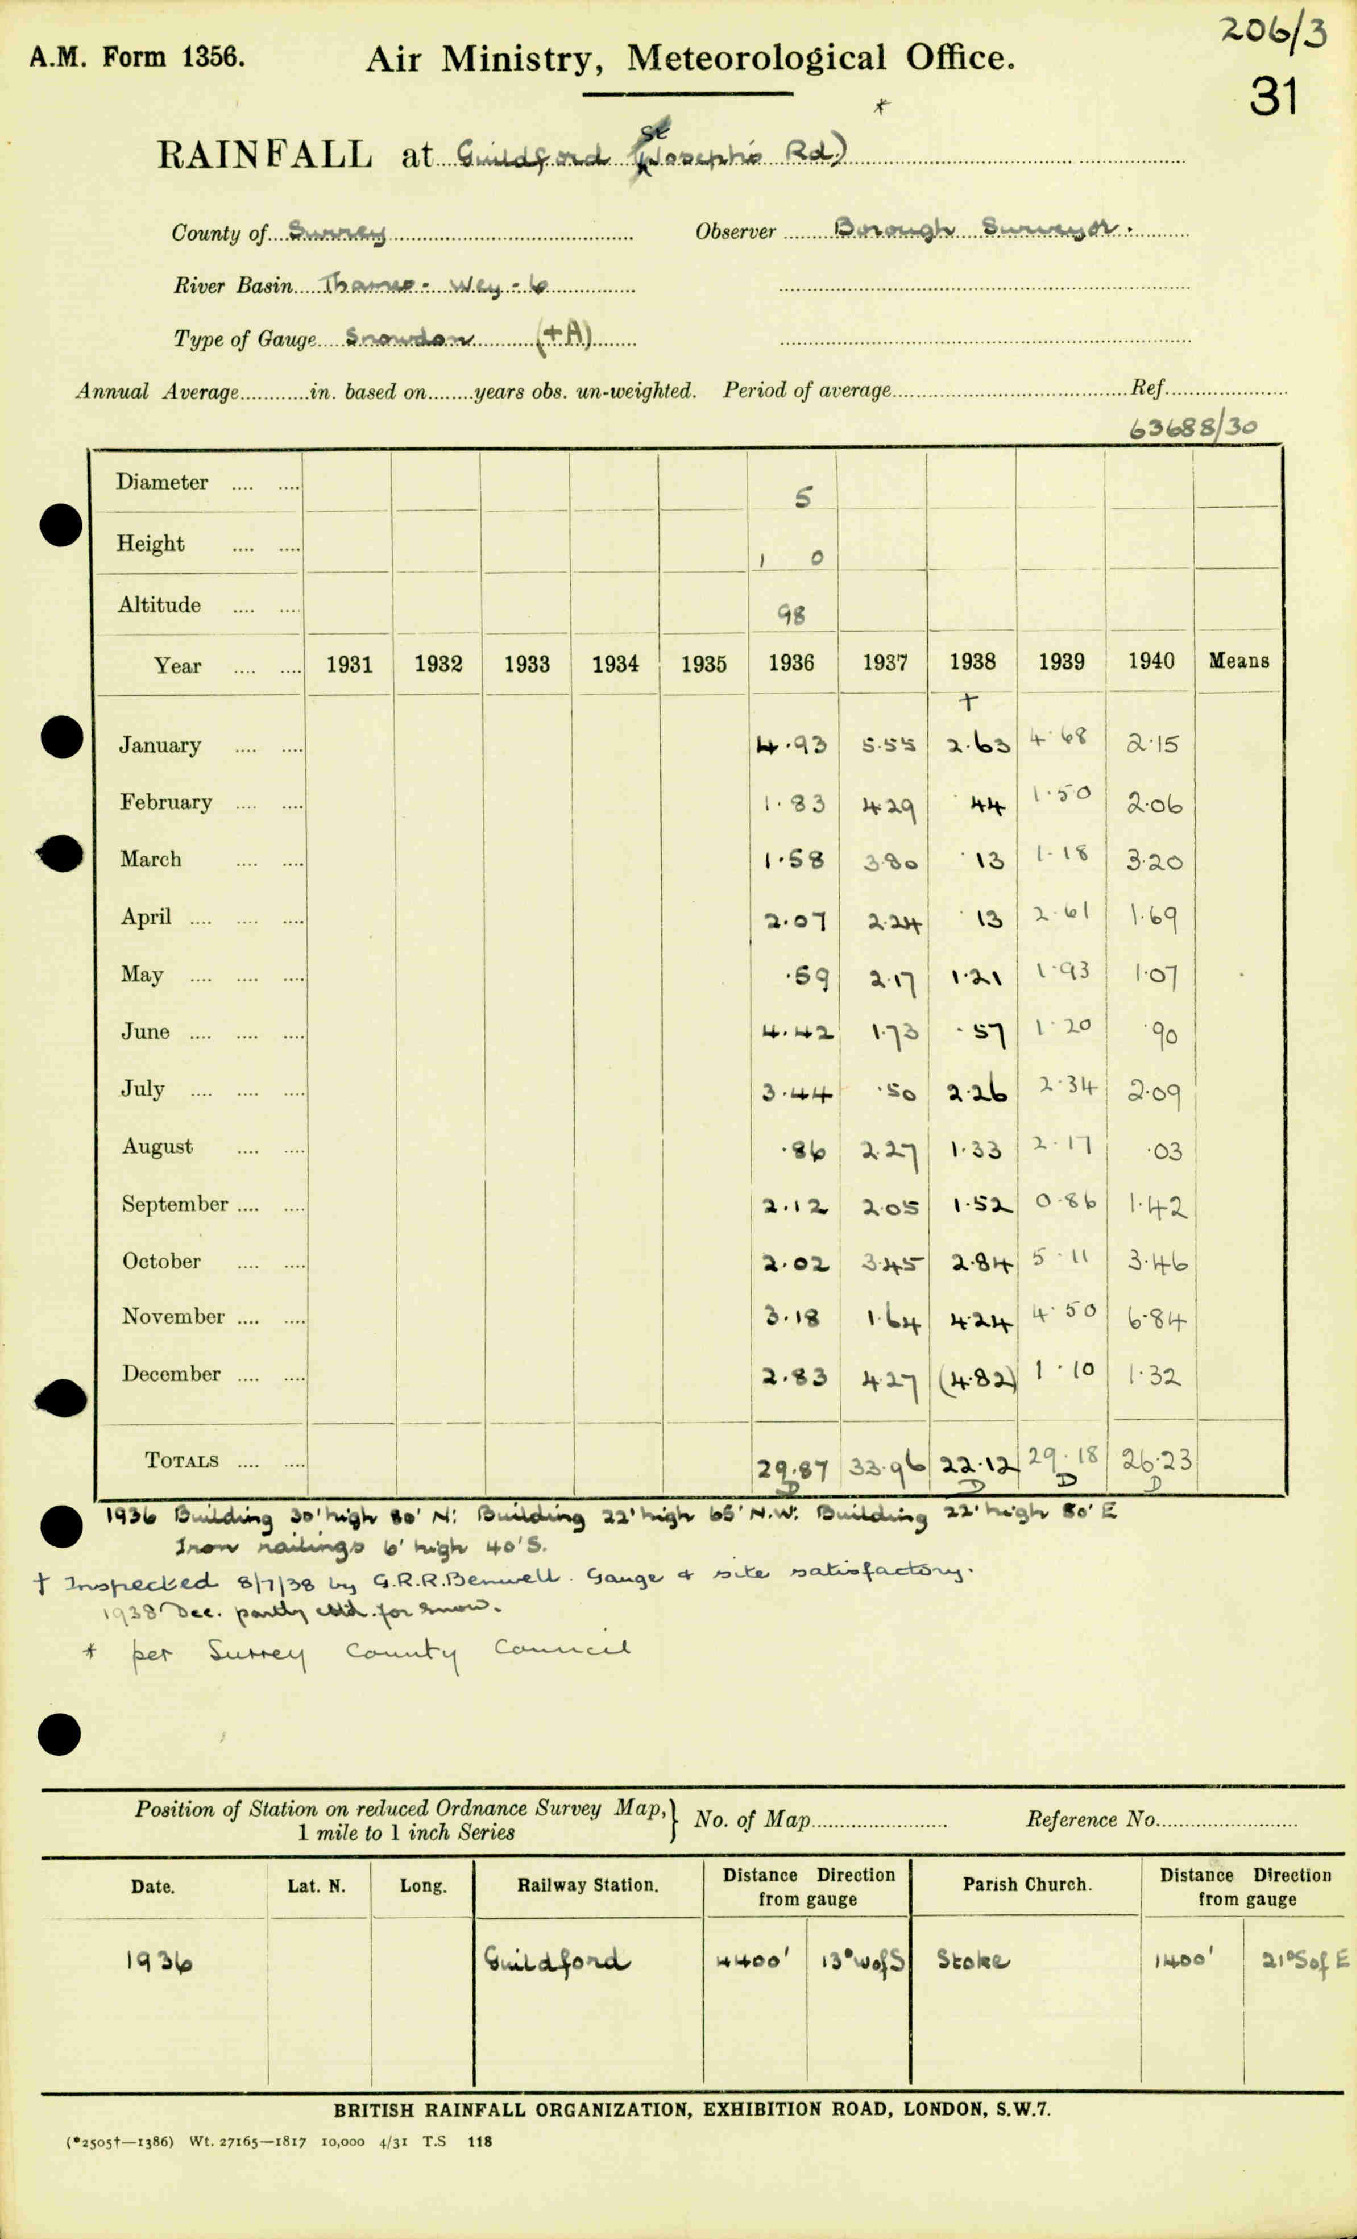 206/3
A.M. Form 1356. Air Ministry, Meteorological Office.
31
*
RAINFALL at Guildford (St Joseph's Rd.)
County of Surrey Observer Borough Surveyor.
River Basin Thames - Wey - 6
Type of Gauge Snowdon (+A)
Annual Average............in. based on........years obs. un-weighted. Period of average............Ref............
63688/30
Diameter .... .... 5
Height .... .... 1 0
Altitude .... .... 98
Year .... .... 1931 1932 1933 1934 1935 1936 1937 1938 1939 1940 Means
†
January .... .... 4.93 5.55 2.63 4.68 2.15
February .... .... 1.83 4.29 .44 1.50 2.06
March .... .... 1.58 3.80 .13 1.18 3.20
April .... .... .... 2.07 2.24 .13 2.61 1.69
May .... .... .... .59 2.17 1.21 1.93 1.07
June .... .... .... 4.42 1.73 .57 1.20 .90
July .... .... .... 3.44 .50 2.26 2.34 2.09
August .... .... .86 2.27 1.33 2.17 .03
September .... .... 2.12 2.05 1.52 0.86 1.42
October .... .... 2.02 3.45 2.84 5.11 3.46
November .... .... 3.18 1.64 4.24 4.50 6.84
December .... .... 2.83 4.27 (4.82) 1.10 1.32
TOTALS .... .... 29.87 33.96 22.12 29.18 26.23
D D D D
1936 Building 30' high 80' N: Building 22' high 65' N.W: Building 22' high 80' E
Iron railings 6' high 40' S.
† Inspected 8/7/38 by G.R.R.Benwell. Gauge & site satisfactory.
1938 Dec. partly estd. for snow.
* per Surrey County Council
Position of Station on reduced Ordnance Survey Map,} No. of Map............ Reference No............
1 mile to 1 inch Series
Date. Lat. N. Long. Railway Station. Distance Direction from gauge Parish Church. Distance Direction from gauge
1936 Guildford 4400' 13° W of S Stoke 1400' 21° S of E
BRITISH RAINFALL ORGANIZATION, EXHIBITION ROAD, LONDON, S.W.7.
(*2505†—1386) Wt. 27165—1817 10,000 4/31 T.S 118